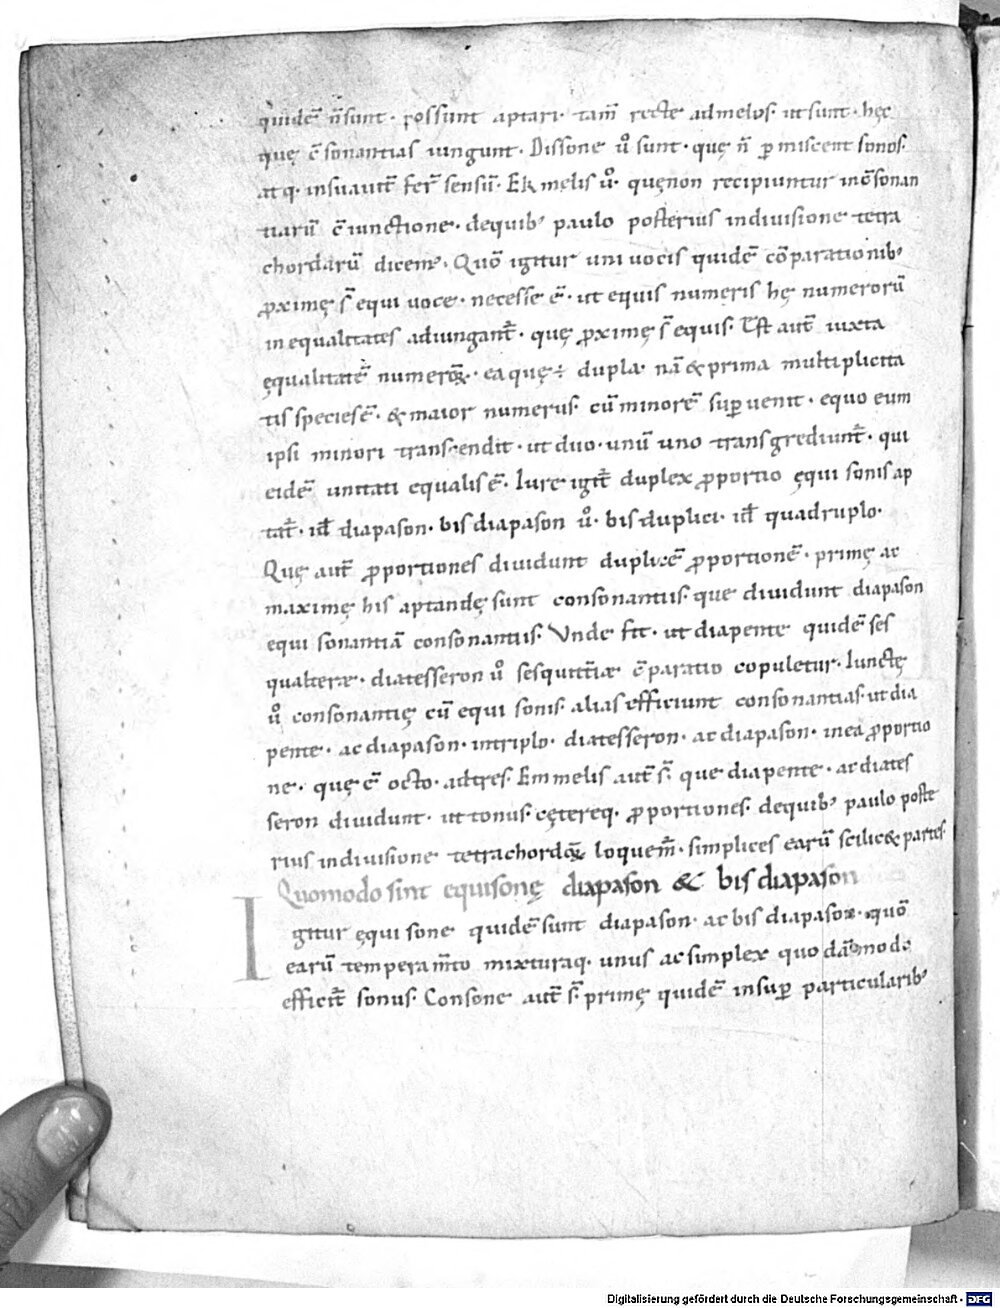 quidē n̄ sunt · possunt aptari · tam̄ recte ad melos · ut sunt · hęc
quę c̄sonantias iungunt · Dissone ů sunt · quę n̄ pmiscent sonos ·
atq · insuauit̄ fer̄ sensū · Ekmelis ů · quę non recipiuntur in c̄sonan
tiarū c̄iunctione · de quib; paulo posterius in diuisione tetra
chordarū dicem; · Quō igitur uni uocis quidē cōparationib;
proximę s̄ equi uoce · necesse ē · ut equis numeris hę numerorū
inequalitates adiungant̄ · quę proximę s̄ equis · Est aut̄ iuxta
ęqualitatē numeroꝝ · ea quę ÷ dupla · nā & prima multiplicita
tis species ē · & maior numerus · cū minorē supuenit · equo eum
ipsi minori transcendit · ut duo · unū uno transgrediunt̄ · qui
eidē unitati equalis ē · Iure igit̄ duplex proportio ęqui sonis ap
tat̄ · id̄ diapason · bis diapason ů · bis duplici · id̄ quadruplo ·
Quę aut̄ proportiones diuidunt duplicē proportionē · primę ac
maximę his aptandę sunt consonantiis · que diuidunt diapason
equi sonantiā consonantiis · Vnde fit · ut diapente quidē ses
qualteræ · diatesseron ů sesquitt̄iæ c̄paratio copuletur · Iunctę
ů consonantię cū equi sonis · alias efficiunt consonantias · ut dia
pente · ac diapason · in triplo · diatesseron · ac diapason · in ea proportio
ne · quę ē octo · ad tres · Emmelis aut̄ s̄ que diapente · ac diates
seron diuidunt · ut tonus · cętereq · proportiones · de quib; paulo poste
rius in diuisione tetrachordoꝝ loquem̄ · simplices earū scilic& partes ·
Quomodo sint equisonę diapason & bis diapason
Igitur ęqui sone quidē sunt diapason · ac bis diapason · quō
earū temperam̄to mixturaq · unus ac simplex quodāmodo
efficit̄ sonus · Consone aut̄ s̄ primę quidē insup particularib;
Digitalisierung gefördert durch die Deutsche Forschungsgemeinschaft - DFG